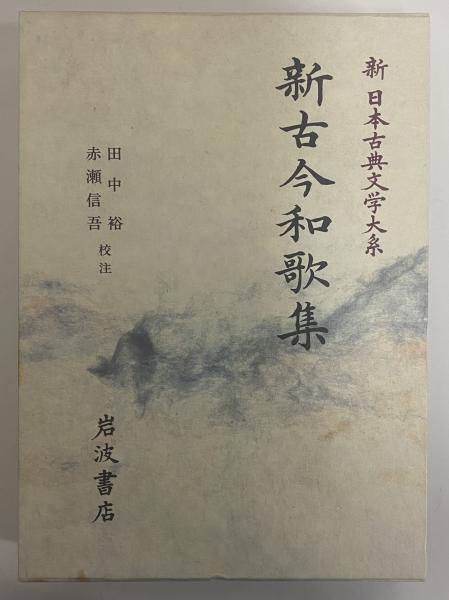 新 日本古典文学大系
新古今和歌集
田中裕
赤瀬信吾
校注
岩波書店